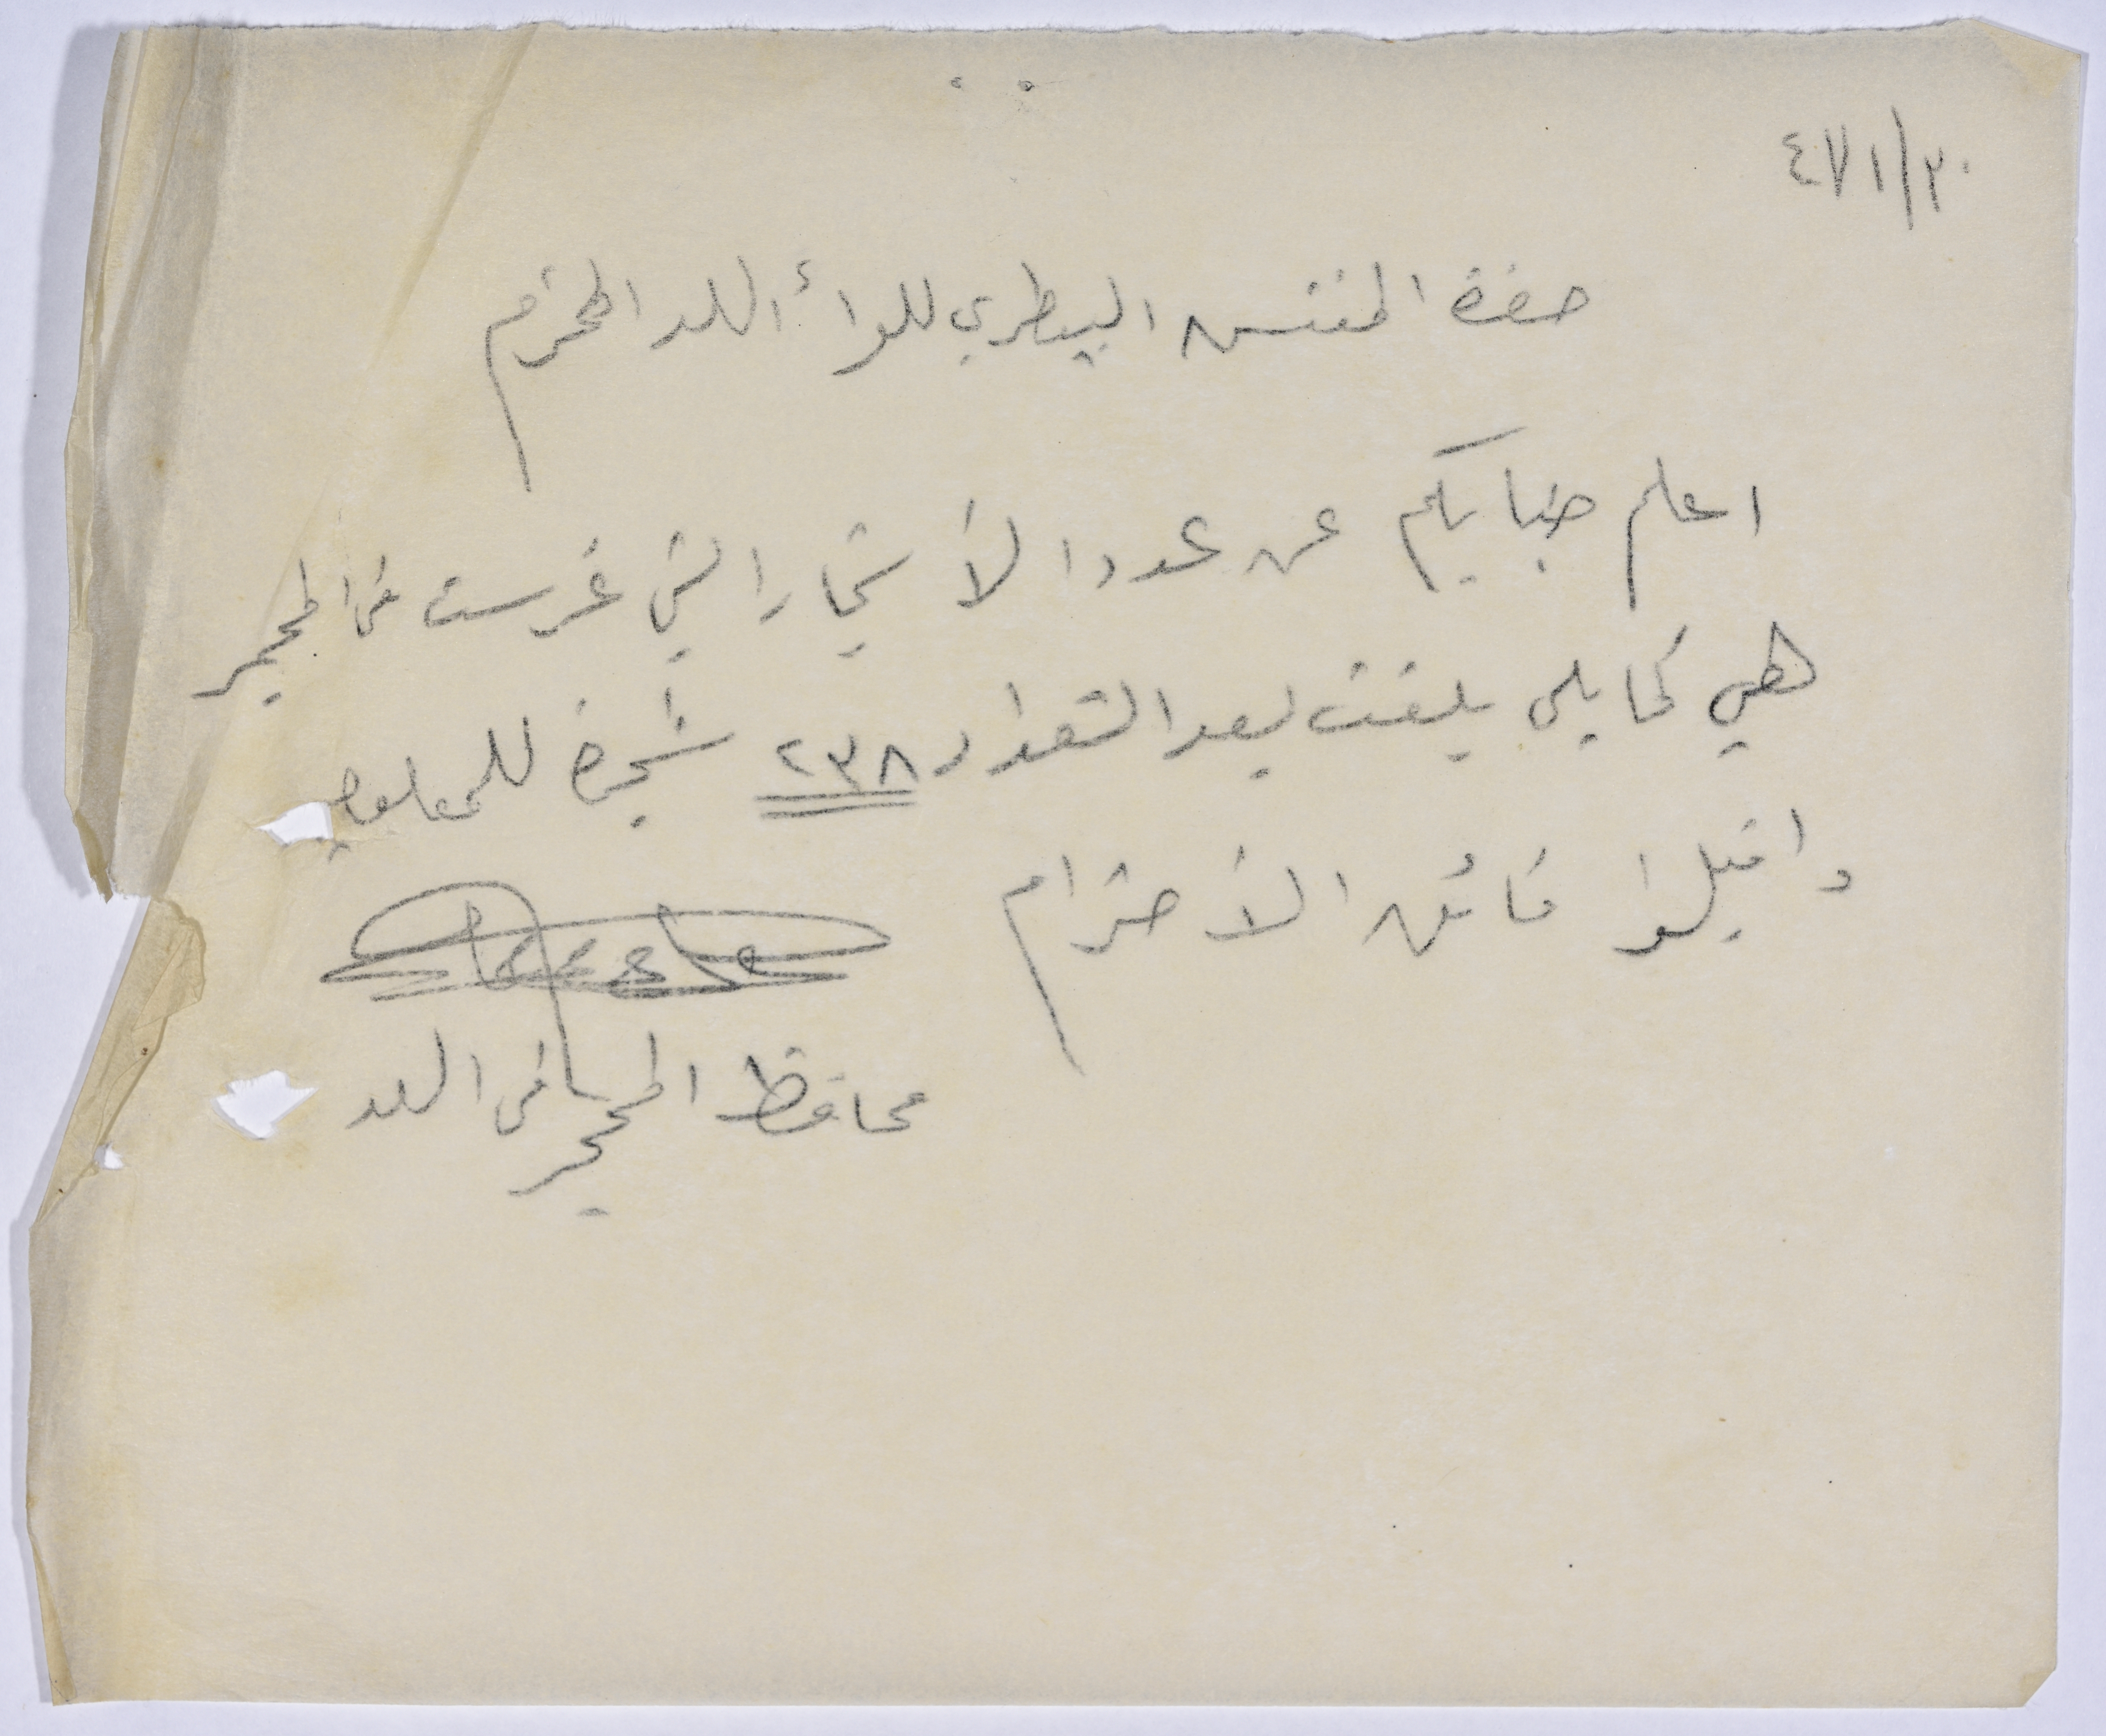 ٤٧/١/٣٠
حضرة المفتش البيطري للواء اللد المحترم
اعلم جنابكم عن عدد الأشجار التي غرست في المحجر
هي كما يلي بلغت بعد التعداد ٢٣٨ شجرة للمعلومية
واقبلوا فائق الأحترام
محافظ المحجر في اللد